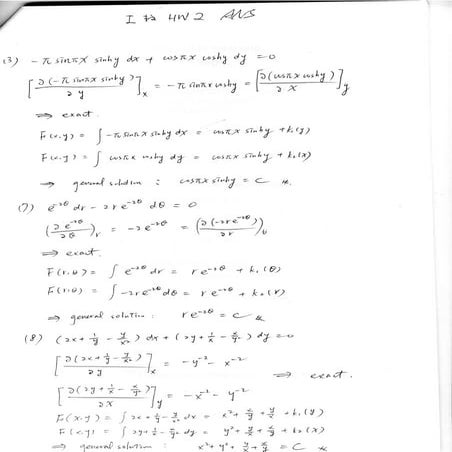 I HW 2 ANS
(3) -π sinπx sinhy dx + cosπx coshy dy = 0
[∂(-π sinπx sinhy)/∂y]ₓ = -π sinπx coshy = [∂(cosπx coshy)/∂x]_y
⇒ exact.
F(x,y) = ∫ -π sinπx sinhy dx = cosπx sinhy + k₁(y)
F(x,y) = ∫ cosπx coshy dy = cosπx sinhy + k₂(x)
→ general solution : cosπx sinhy = C
(7) e^-2θ dr - 2re^-2θ dθ = 0
(∂e^-2θ/∂θ)_r = -2e^-2θ = (∂(-2re^-2θ)/∂r)_θ
⇒ exact.
F(r,θ) = ∫ e^-2θ dr = re^-2θ + k₁(θ)
F(r,θ) = ∫ -2re^-2θ dθ = re^-2θ + k₂(r)
⇒ general solution : re^-2θ = C
(8) (2x + 1/y - y/x²) dx + (2y + 1/x - x/y²) dy = 0
[∂(2x + 1/y - y/x²)/∂y]ₓ = -y^-2 - x^-2
[∂(2y + 1/x - x/y²)/∂x]_y = -x^-2 - y^-2 ⇒ exact.
F(x,y) = ∫ 2x + 1/y - y/x² dx = x² + x/y + y/x + k₁(y)
F(x,y) = ∫ 2y + 1/x - x/y² dy = y² + y/x + x/y + k₂(x)
⇒ general solution : x² + y² + y/x + x/y = C